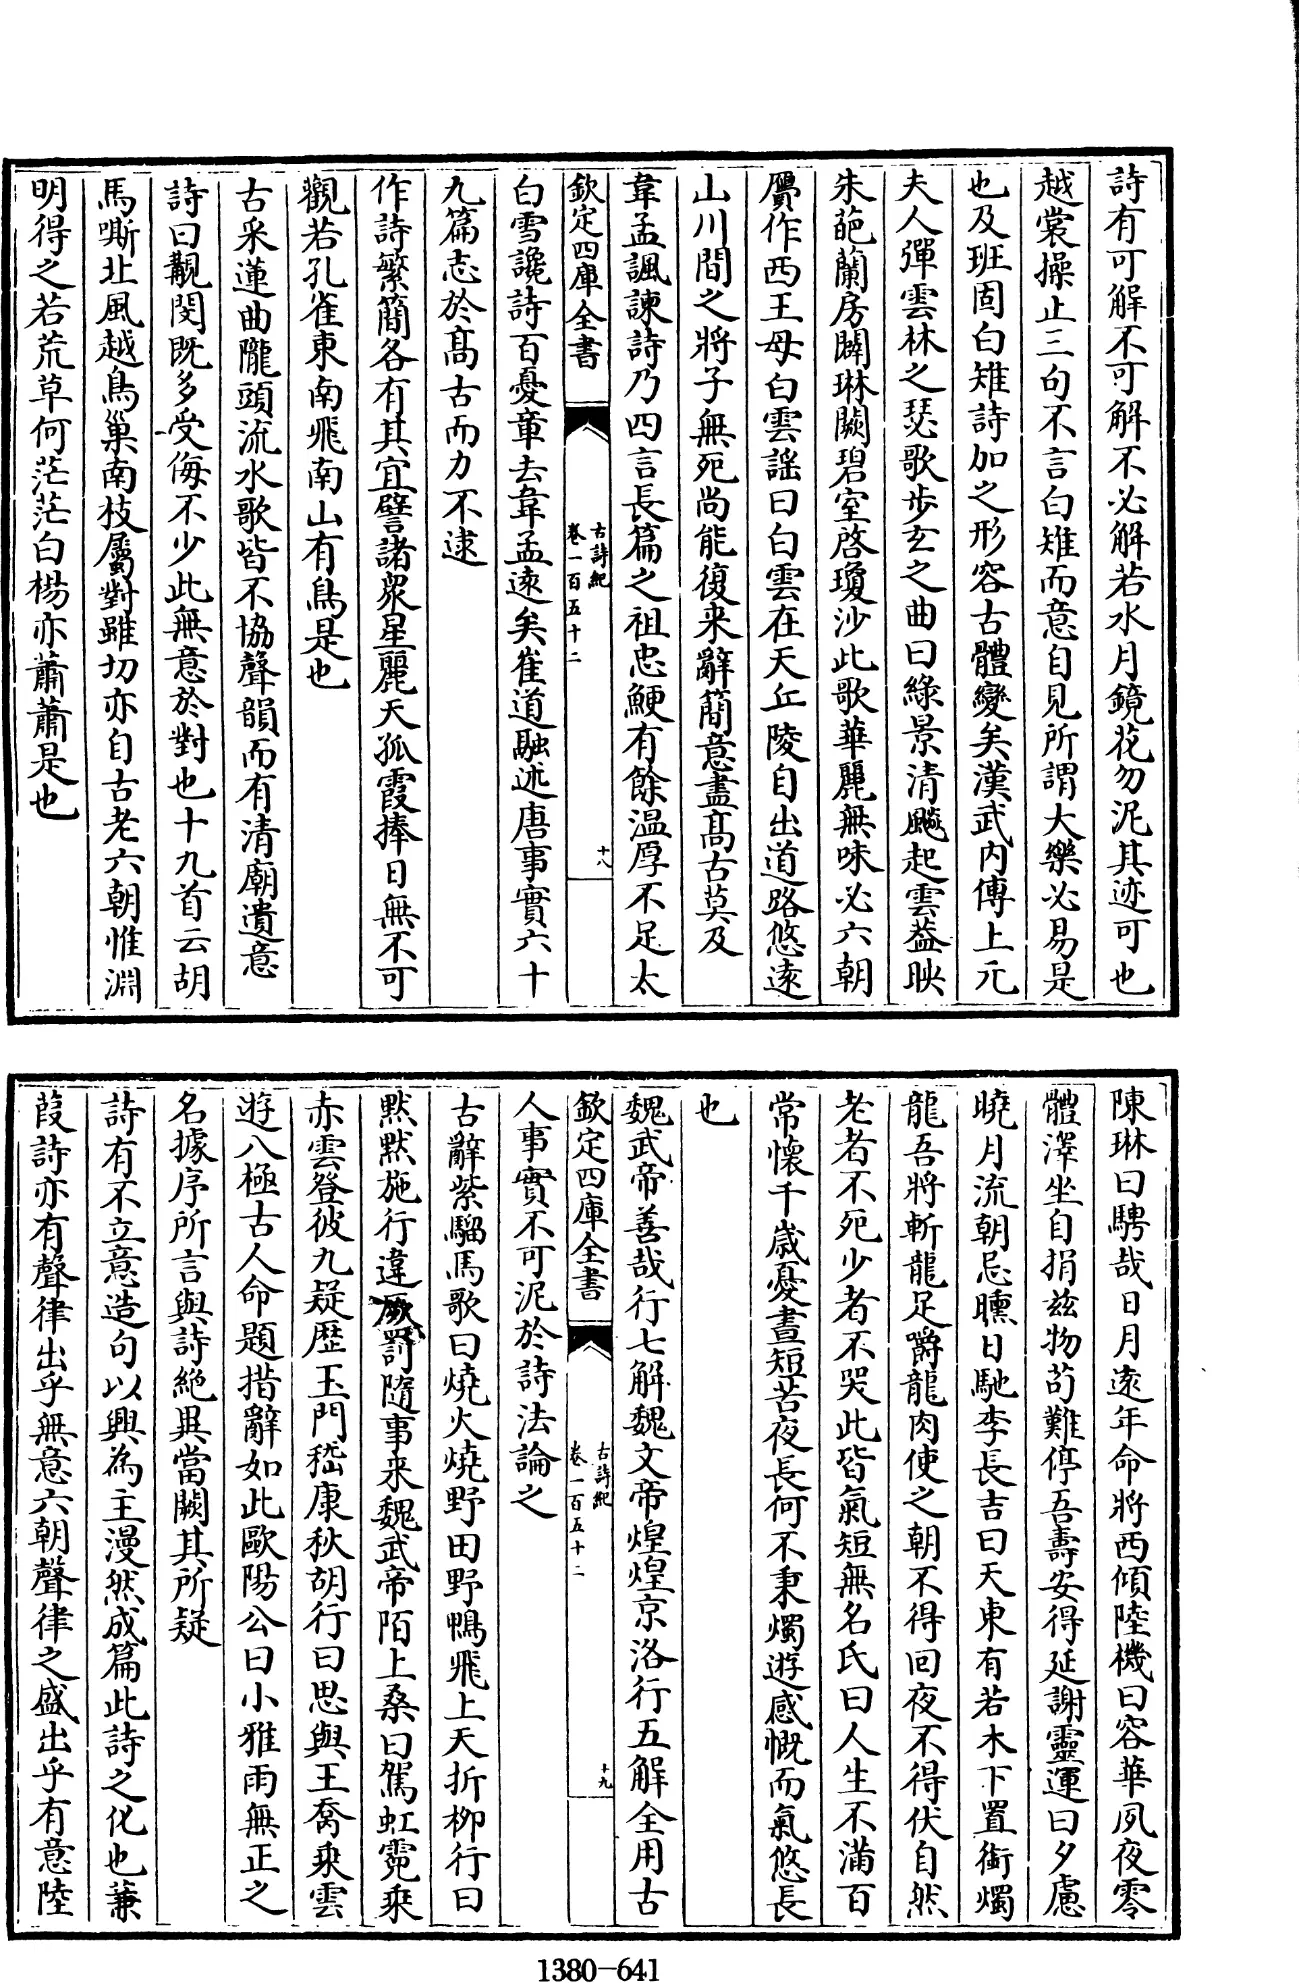 詩有可解不可解不必解若水月鏡花勿泥其迹可也
越裳操止三句不言白雉而意自見所謂大樂必易是
也及班固白雉詩加之形容古體變矣漢武内傳上元
夫人彈雲林之瑟歌步玄之曲曰綠景清飈起雲葢映
朱葩蘭房闢琳闕碧室啓瓊沙此歌華麗無味必六朝
贋作西王母白雲謡曰白雲在天丘陵自出道路悠逺
山川間之將子無死尚能復来辭簡意盡髙古莫及
韋孟諷諫詩乃四言長篇之祖忠鯁有餘温厚不足太
欽定四庫全書
古詩紀
卷一百五十二
十八
白雪讒詩百憂章去韋孟逺矣崔道融述唐事實六十
九篇志於髙古而力不逮
作詩繁簡各有其宜譬諸衆星麗天孤霞捧日無不可
觀若孔雀東南飛南山有鳥是也
古采蓮曲隴頭流水歌皆不協聲韻而有清廟遺意
詩曰覯閔既多受侮不少此無意於對也十九首云胡
馬嘶北風越鳥巢南枝屬對雖切亦自古老六朝惟淵
明得之若荒草何茫茫白楊亦蕭蕭是也
陳琳曰騁哉日月逺年命將西傾陸機曰容華夙夜零
體澤坐自捐兹物茍難停吾壽安得延謝靈運曰夕慮
曉月流朝忌曛日馳李長吉曰天東有若木下置銜燭
龍吾將斬龍足嚼龍肉使之朝不得回夜不得伏自然
老者不死少者不哭此皆氣短無名氏曰人生不滿百
常懷千嵗憂晝短苦夜長何不秉燭遊感慨而氣悠長
也
魏武帝善哉行七解魏文帝煌煌京洛行五解全用古
欽定四庫全書
古詩紀
卷一百五十二
十九
人事實不可泥於詩法論之
古辭紫騮馬歌曰燒火燒野田野鴨飛上天折柳行曰
默默施行違厥罰隨事来魏武帝陌上桑曰駕虹霓乘
赤雲登彼九疑歴玉門嵇康秋胡行曰思與王喬乗雲
遊八極古人命題措辭如此歐陽公曰小雅雨無正之
名據序所言與詩絶異當闕其所疑
詩有不立意造句以興為主漫然成篇此詩之化也蒹
葭詩亦有聲律出乎無意六朝聲律之盛出乎有意陸
1380-641